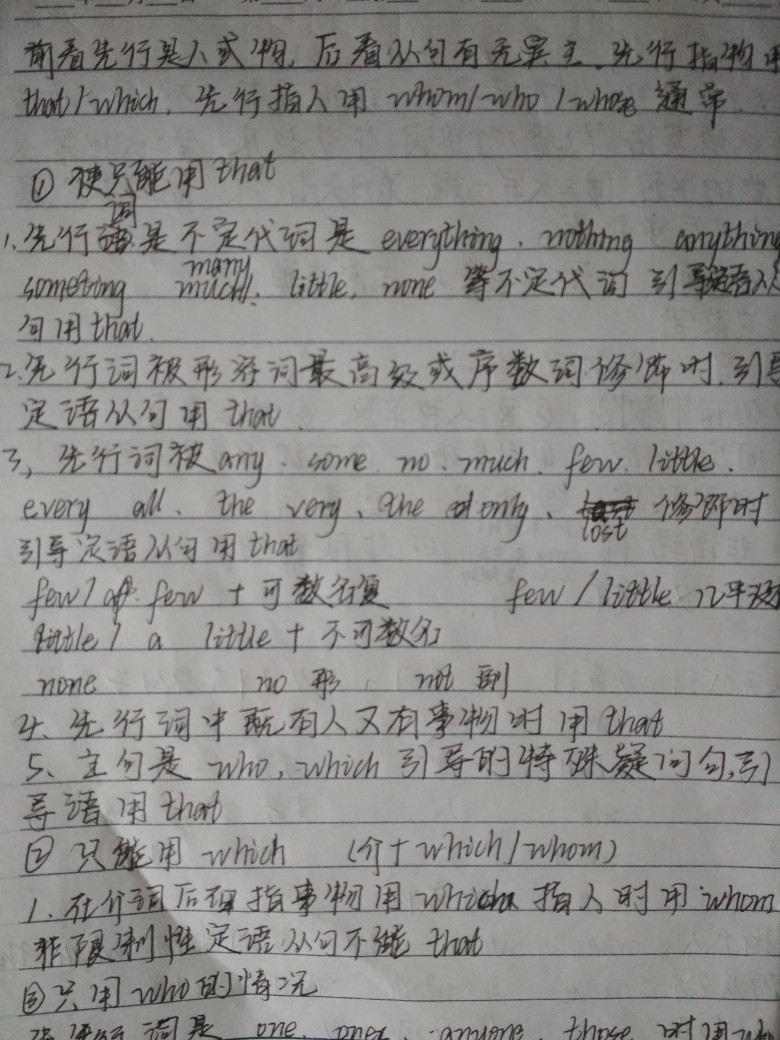 前看先行是人或物,后看从句有无宾主.先行指物用
that/which,先行指人用 whom/who/whose 通常.
① 使只能用that
1.先行词是不定代词是 everything、nothing anything
something many much、little、none 等不定代词 引导定语从
句用that.
2.先行词被形容词最高级或序数词修饰时,引导
定语从句用 that.
3、先行词被any、some no、much、few、little、
every all、the very、the only、lost 修饰时
引导定语从句用that
few/a few + 可数名复 few/little 几乎没
little/ a little + 不可数名
none no 形, not 副
4、先行词中既有人又有事物时用that
5、主句是 who,which引导的特殊疑问句,引
导语用that
② 只能用 which (介+which/whom)
1.在介词后面指事物用which 指人时用whom
非限制性定语从句不能 that
③只用who的情况
词是 one、ones、anyone、those 时用